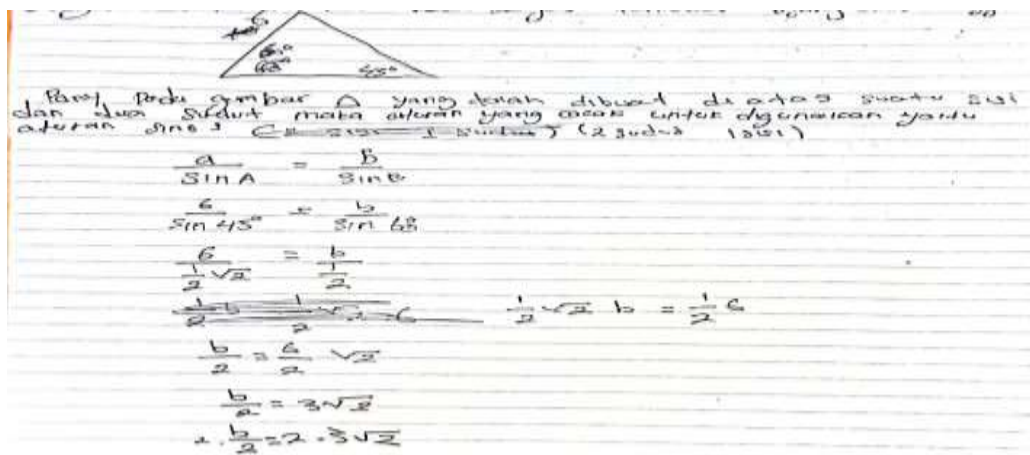 6
45°
pada gambar △ yang telah dibuat di atas suatu sisi
dan dua sudut maka aturan yang cocok untuk digunakan yaitu
aturan sinus (2 sudut 1 sisi)
a / sin A = b / sin B
6 / sin 45° = b / sin
6 / ½√2 = b / ½
½√2 b = ½ 6
b/2 = 6/2 √2
b/2 = 3√2
2 . b/2 = 2 . 3√2